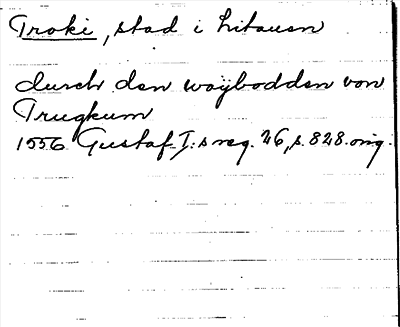 Troki, stad i Litauen
durch den waÿbodden von
Trugkum
1556 Gustaf I:s reg. 26, s. 828. orig.